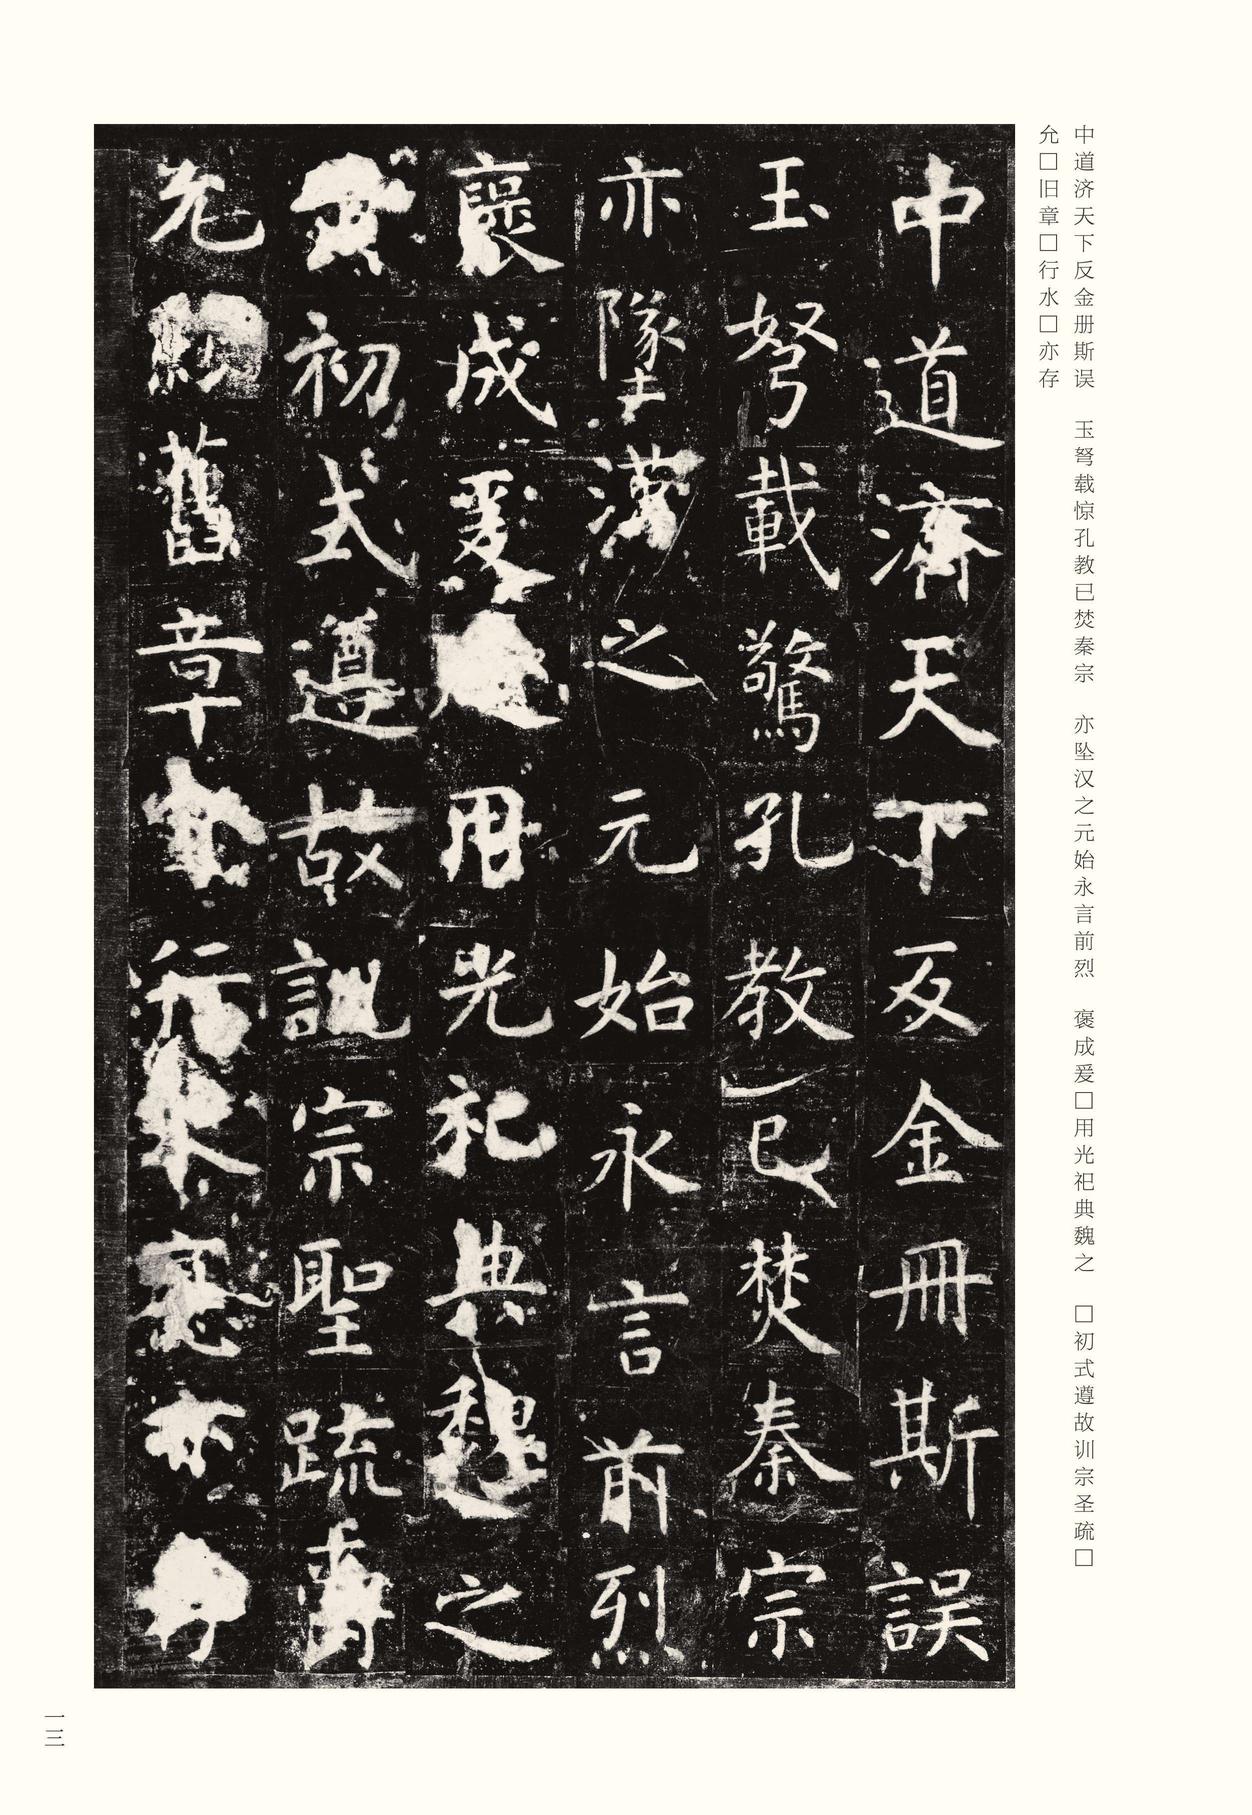 中道济天下反金册斯误　玉弩载惊孔教已焚秦宗　亦坠汉之元始永言前烈　褒成爰□用光祀典魏之　□初式遵故训宗圣疏□
允□旧章□行水□亦存
中道濟天下反金冊斯誤
玉弩載驚孔教已焚秦宗
亦墜漢之元始永言前烈
襃成爰用光祀典魏之
初式遵故訓宗聖疏
允舊章行亦
一三